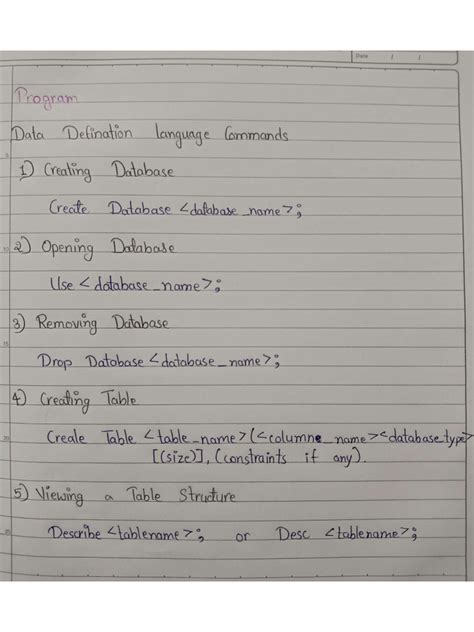 Date / /
Program
Data Defination language Commands
1) Creating Database
Create Database <database_name>;
2) Opening Database
Use < database_name>;
3) Removing Database
Drop Database <database_name>;
4) Creating Table
Create Table <table_name>(<columne_name><database_type>
[(size)], (constraints if any).
5) Viewing a Table Structure
Describe <tablename>; or Desc <tablename>;